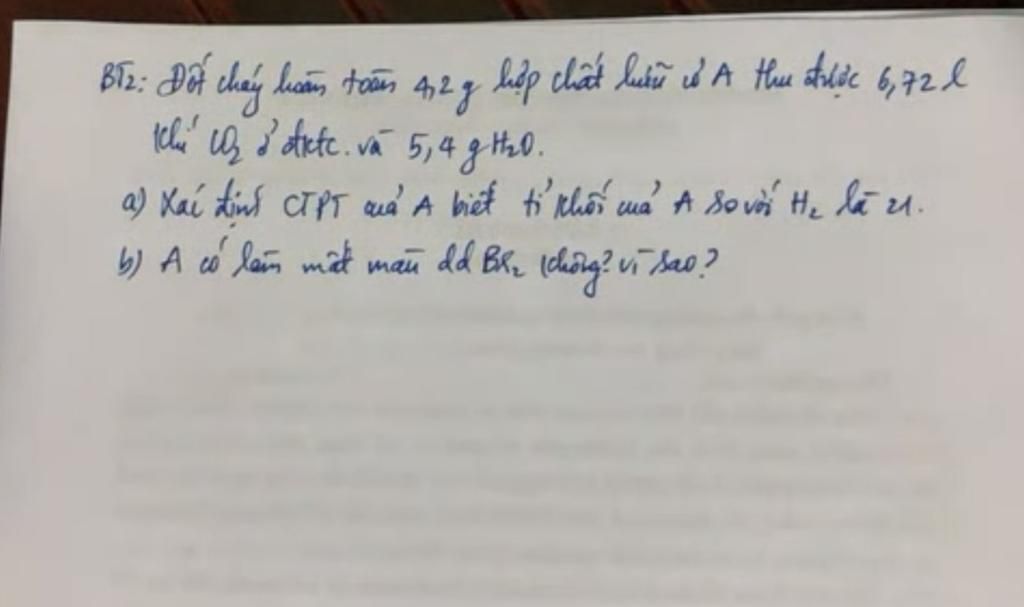 BT2: Đốt cháy hoàn toàn 4,2 g hợp chất hữu cơ A thu được 6,72 l
khí CO₂ ở đktc. và 5,4 g H₂O.
a) Xác định CTPT của A biết tỉ khối của A so với H₂ là 21.
b) A có làm mất màu dd Br₂ không? vì sao?